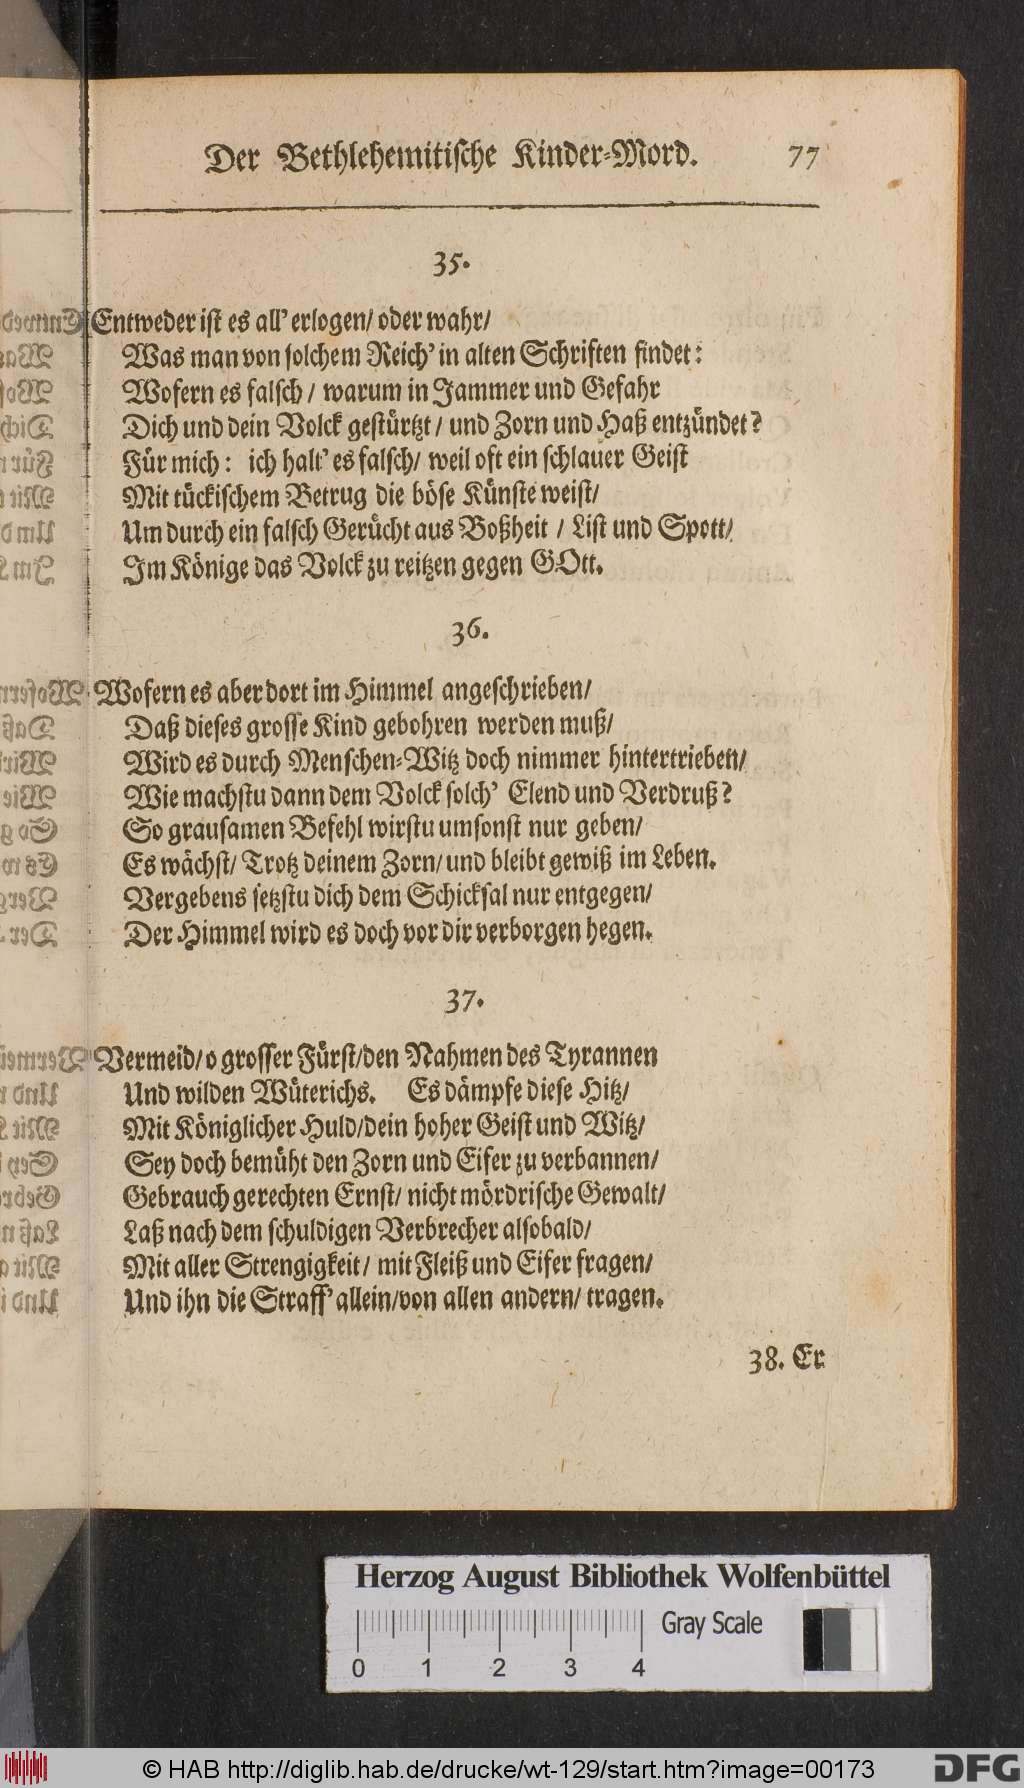 Der Bethlehemitische Kinder-Mord. 77
35.
Entweder ist es all' erlogen/ oder wahr/
Was man von solchem Reich' in alten Schriften findet:
Wofern es falsch / warum in Jammer und Gefahr
Dich und dein Volck gestürtzt / und Zorn und Haß entzündet?
Für mich: ich halt' es falsch/ weil oft ein schlauer Geist
Mit tückischem Betrug die böse Künste weist/
Um durch ein falsch Gerücht aus Boßheit / List und Spott/
Im Könige das Volck zu reitzen gegen GOtt.
36.
Wofern es aber dort im Himmel angeschrieben/
Daß dieses grosse Kind gebohren werden muß/
Wird es durch Menschen-Witz doch nimmer hintertrieben/
Wie machstu dann dem Volck solch' Elend und Verdruß?
So grausamen Befehl wirstu umsonst nur geben/
Es wächst/ Trotz deinem Zorn/ und bleibt gewiß im Leben.
Vergebens setzstu dich dem Schicksal nur entgegen/
Der Himmel wird es doch vor dir verborgen hegen.
37.
Vermeid/ o grosser Fürst/ den Nahmen des Tyrannen
Und wilden Wüterichs. Es dämpfe diese Hitz/
Mit Königlicher Huld/ dein hoher Geist und Witz/
Sey doch bemüht den Zorn und Eifer zu verbannen/
Gebrauch gerechten Ernst/ nicht mördrische Gewalt/
Laß nach dem schuldigen Verbrecher alsobald/
Mit aller Strengigkeit/ mit Fleiß und Eifer fragen/
Und ihn die Straff' allein/ von allen andern/ tragen.
38. Er
Herzog August Bibliothek Wolfenbüttel
Gray Scale
0 1 2 3 4
© HAB http://diglib.hab.de/drucke/wt-129/start.htm?image=00173
DFG